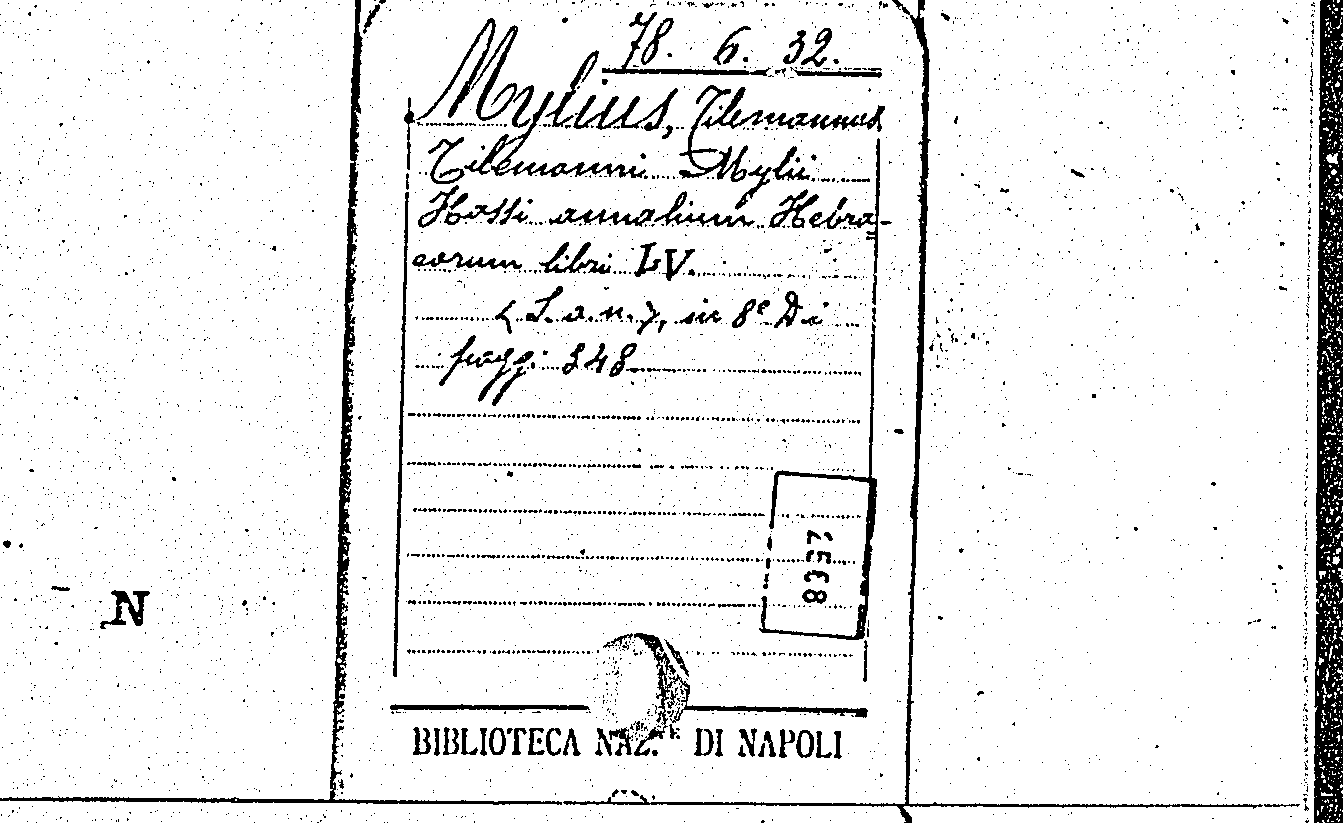 78. 6. 32.
Mylius, Tilemannus
Tilemanni Mylii
Hassi annalium Hebra-
eorum libri LV.
< S. a. n. >, in 8º Di
pagg: 348
2538
N
BIBLIOTECA NAZ.LE DI NAPOLI